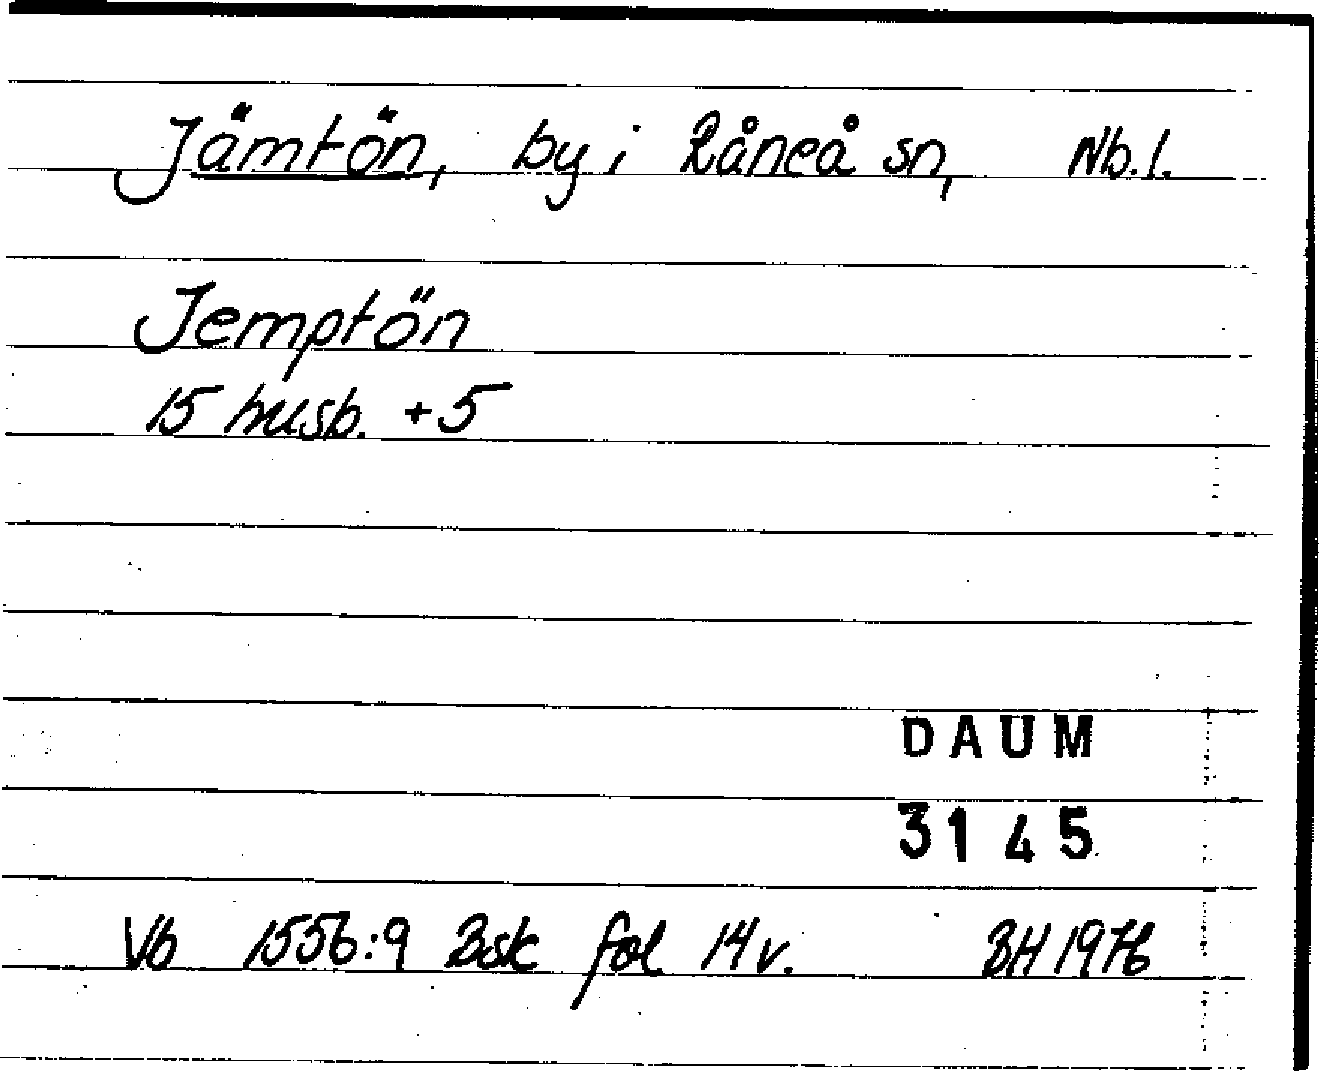 Jämtön, by i Råneå sn, Nb.l.
Jemptön
15 husb. +5
DAUM
3145
Vb 1556:9 Bsk fol 14v. BH 1976